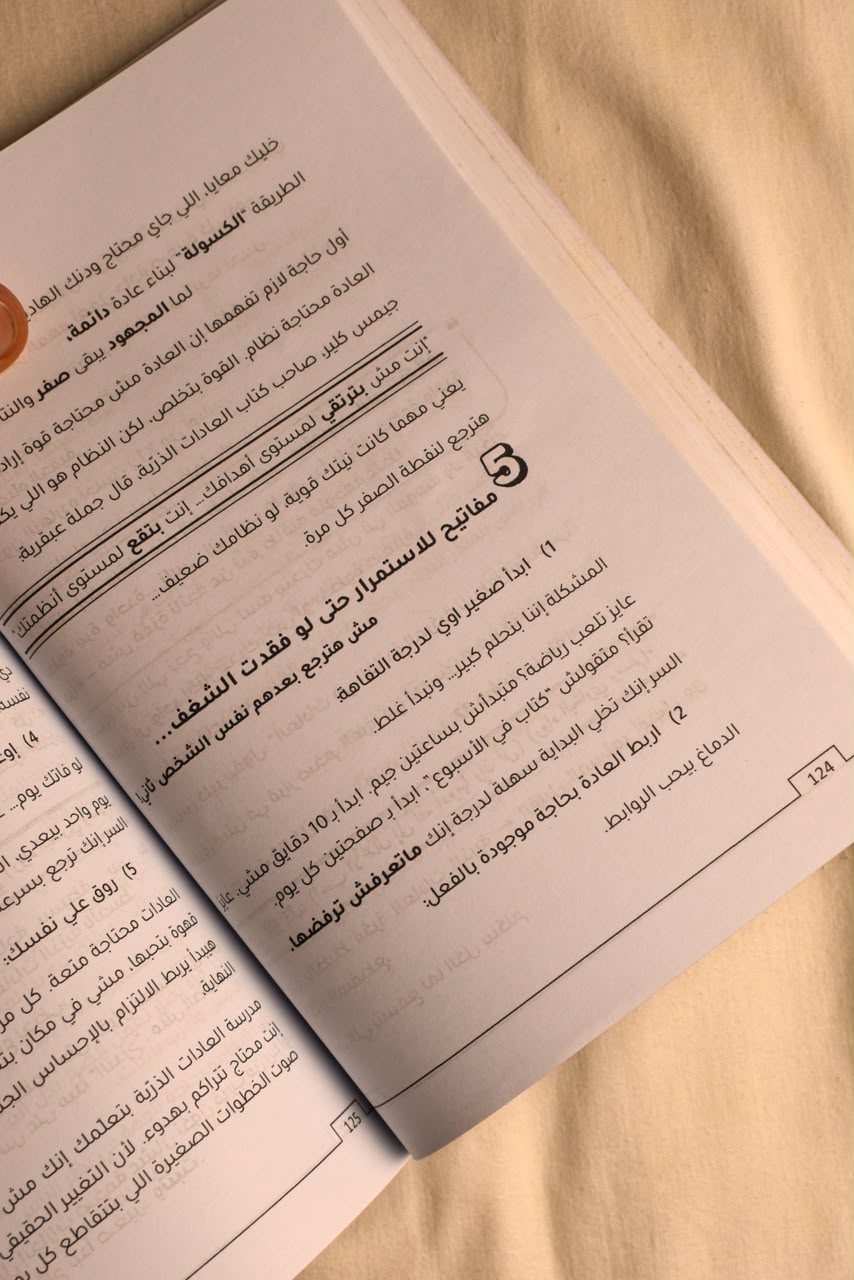 خليك معايا. اللي جاي محتاج ودنك
الطريقة "الكسولة" لبناء عادة دائمة،
لما المجهود يبقى صفر
أول حاجة لازم تفهمها إن العادة مش محتاجة قوة
العادة محتاجة نظام. القوة بتخلص، لكن النظام هو اللي
جيمس كلير، صاحب كتاب العادات الذرّية، قال جملة عبقرية:
"إنت مش بترتقي لمستوى أهدافك... إنت بتقع لمستوى أنظمتك"
يعني مهما كانت نيتك قوية، لو نظامك ضعيف...
هترجع لنقطة الصفر كل مرة.
5 مفاتيح للاستمرار حتى لو فقدت الشغف...
مش هترجع بعدهم نفس الشخص تاني!
1) ابدأ صغير اوي لدرجة التفاهة:
المشكلة إننا بنحلم كبير... ونبدأ غلط.
عايز تلعب رياضة؟ متبدأش بساعتين جيم. ابدأ بـ 10 دقايق مشي. عايز
تقرأ؟ متقولش "كتاب في الأسبوع": ابدأ بـ صفحتين كل يوم.
السر إنك تخلي البداية سهلة لدرجة إنك ماتعرفش ترفضها.
2) اربط العادة بحاجة موجودة بالفعل:
الدماغ بيحب الروابط.
124
4)
لو فاتك يوم...
يوم واحد بيعدي،
السر إنك ترجع
5) روق علي نفسك:
العادات محتاجة متعة. كل
قهوة بتحبها، مشي في مكان
هيبدأ يربط الالتزام بالإحساس
النهاية.
مدرسة العادات الذرّية بتعلّمك إنك مش
إنت محتاج تتراكم بهدوء. لأن التغيير الحقيقي
صوت الخطوات الصغيرة اللي بتتقاطع كل
125